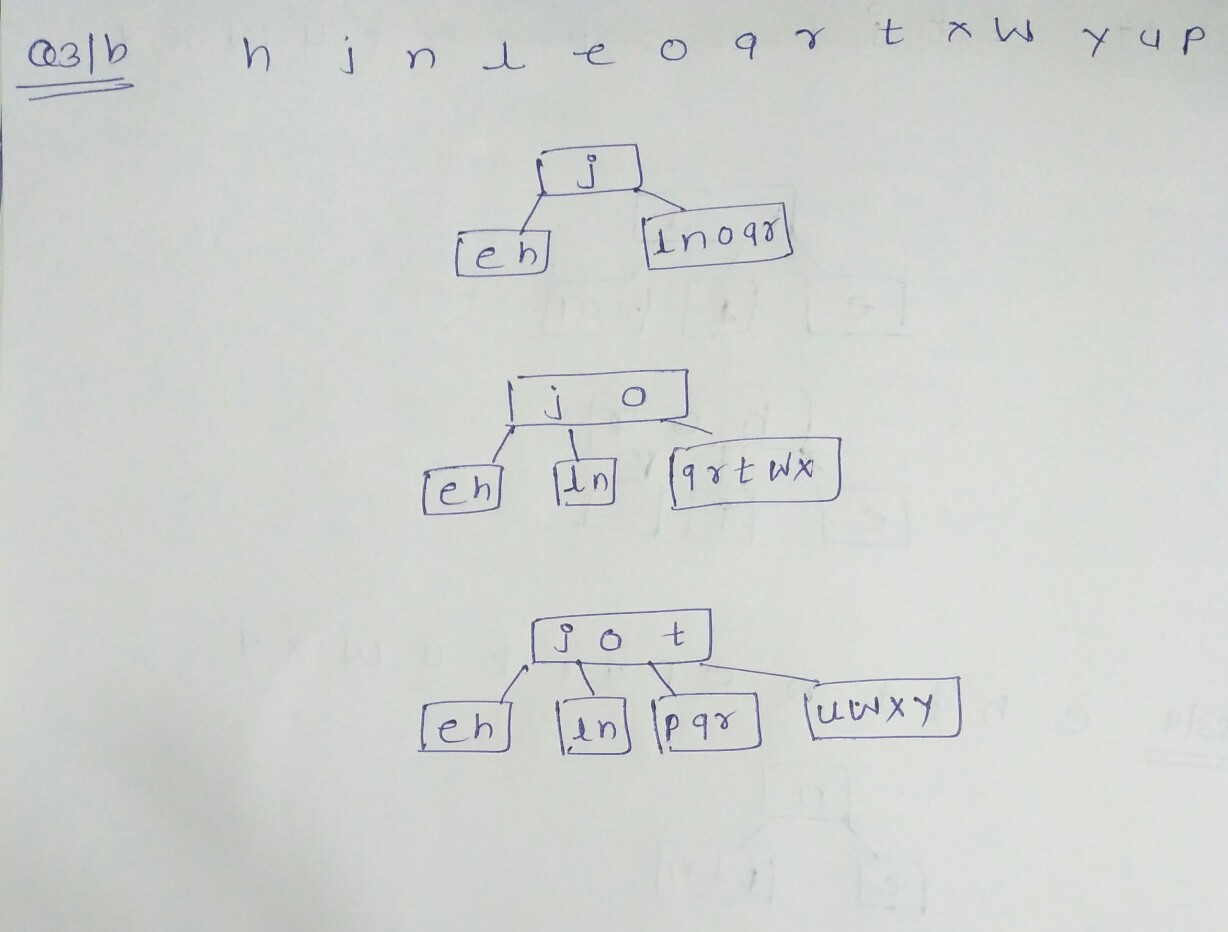 Q3/b h j n l e o q r t x w y u p
j
e h
l n o q r
j o
e h l n q r t w x
j o t
e h l n p q r u w x y